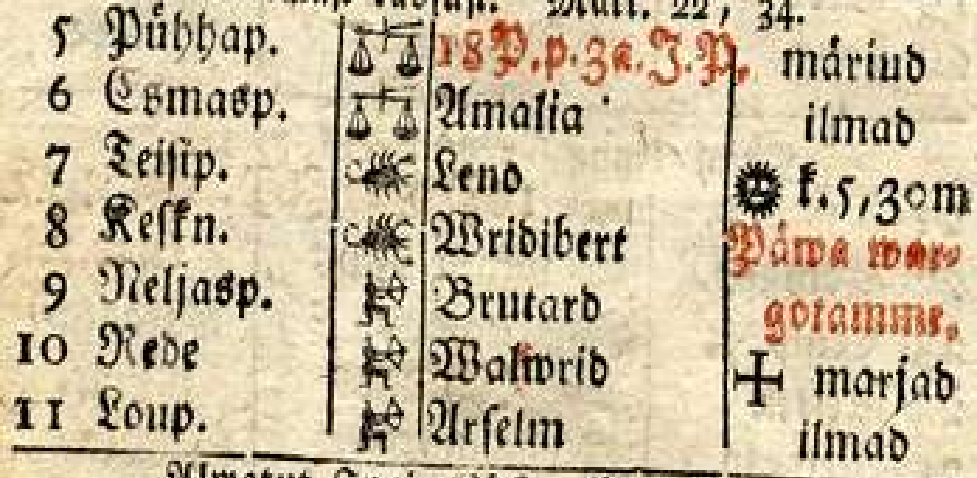 Matt. 22, 34.
5 Pühhap. 18 P. p. 3a. J. P. märjud
6 Esmasp. Amalia ilmad
7 Teisip. Leno k. 5, 30m
8 Keskn. Wridibert Päwa war-
9 Neljasp. Brutard gotamme.
10 Rede Walwrid marjad
11 Loup. Arselm ilmad